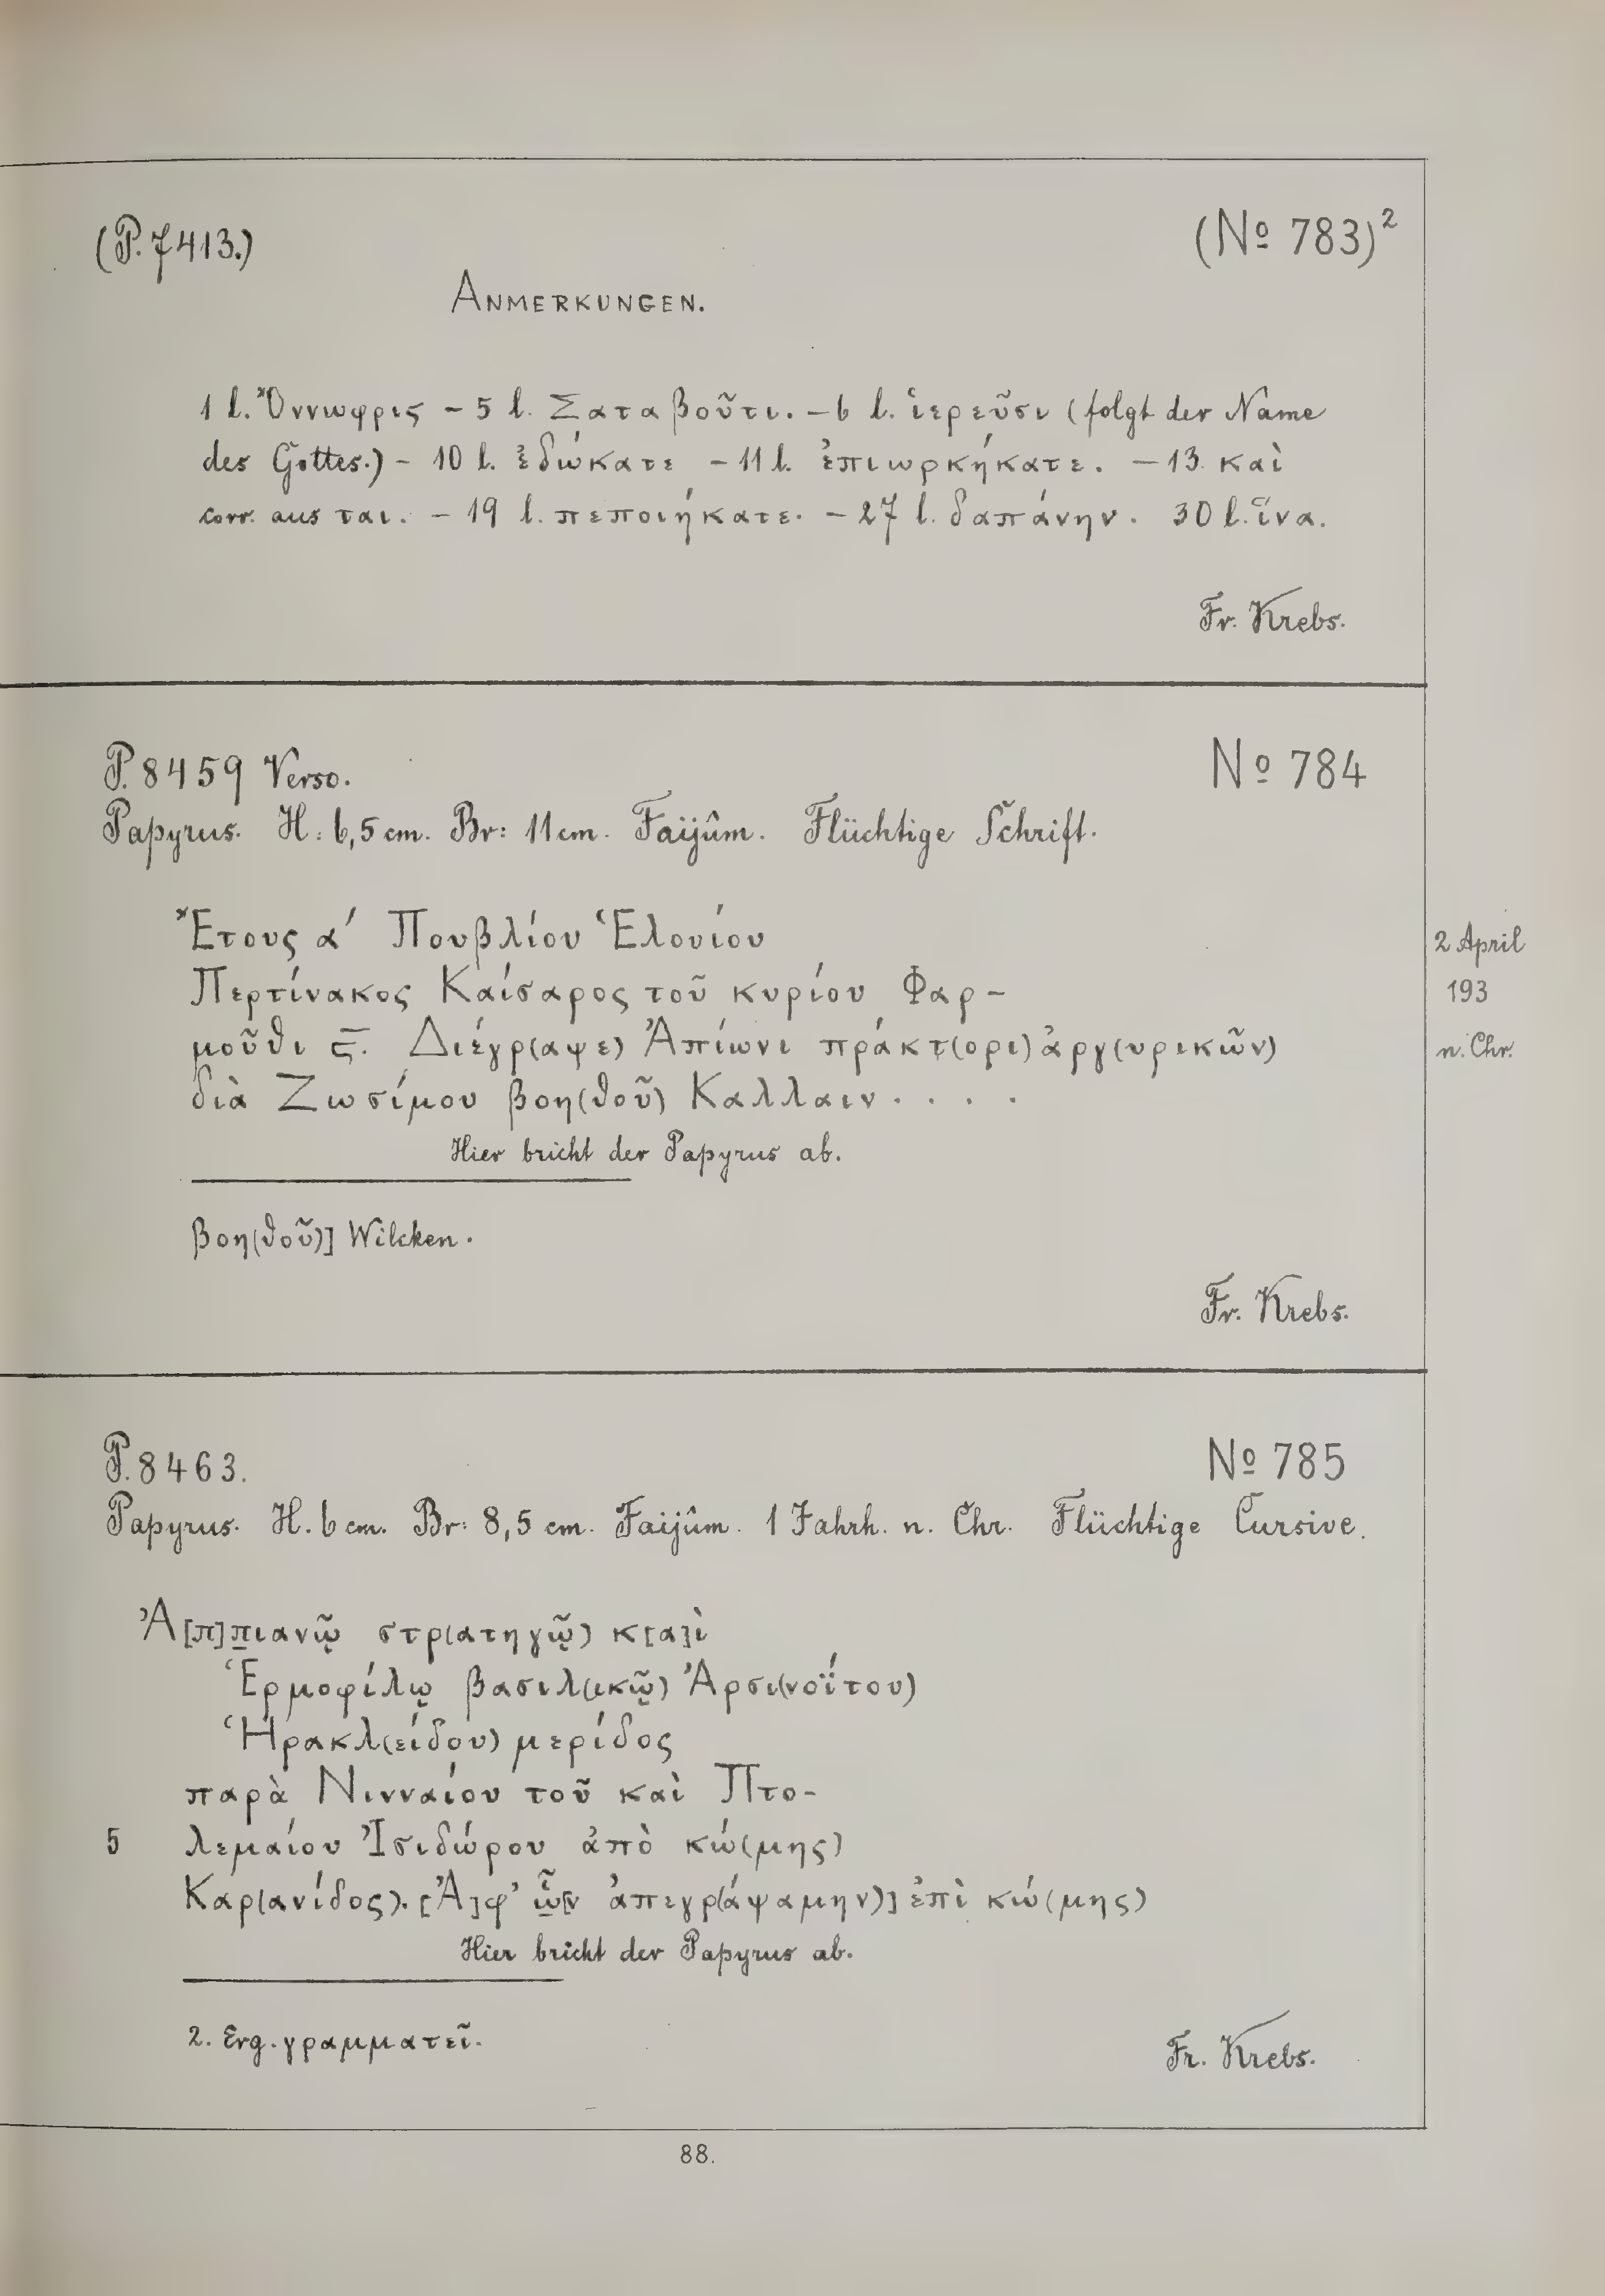 (P. 7413.)
(No 783)²
ANMERKUNGEN.
1 l. Ὄννωφρις – 5 l. Σαταβοῦτι. – 6 l. ἱερεῦσι (folgt der Name
des Gottes.) – 10 l. ἐδώκατε – 11 l. ἐπιωρκήκατε. – 13. καὶ
corr. aus ται. – 19 l. πεποιήκατε. – 27 l. δαπάνην. 30 l. ἵνα.
Fr. Krebs.
P. 8459 Verso.
No 784
Papyrus. H: 6,5 cm. Br: 11 cm. Faijûm. Flüchtige Schrift.
Ἔτους α´ Πουβλίου Ἑλουίου
2 April
Περτίνακος Καίσαρος τοῦ κυρίου Φαρ-
193
μοῦθι ς̅. Διέγρ(αψε) Ἀπίωνι πράκτ(ορι) ἀργ(υρικῶν)
n. Chr.
διὰ Ζωσίμου βοη(θοῦ) Καλλαιν . . . .
Hier bricht der Papyrus ab.
βοη(θοῦ)] Wilcken.
Fr. Krebs.
P. 8463.
No 785
Papyrus. H. 6 cm. Br: 8,5 cm. Faijûm. 1 Jahrh. n. Chr. Flüchtige Cursive.
Ἀ[π]π̲ιανῷ στρ(ατηγῷ) κ[α]ὶ
Ἑρμοφίλῳ βασιλ(ικῷ) Ἀρσι(νοΐτου)
Ἡρακλ(είδου) μερίδος
παρὰ Νινναίου τοῦ καὶ Πτο-
5 λεμαίου Ἰσιδώρου ἀπὸ κώ(μης)
Καρ(ανίδος). [Ἀ]φ’ ὧ̲[ν ἀπεγρ(άψαμην)] ἐπὶ κώ(μης)
Hier bricht der Papyrus ab.
2. Erg. γραμματεῖ.
Fr. Krebs.
88.